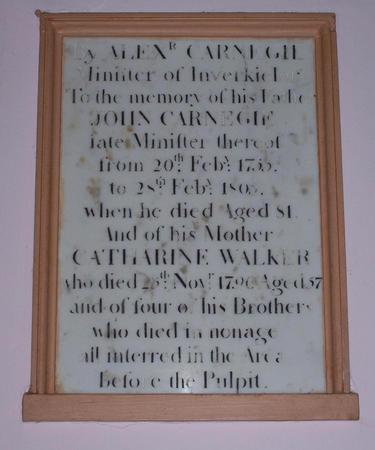 By ALEXR CARNEGIE
Minister of Inverkeilor
To the memory of his Father
JOHN CARNEGIE
late Minister thereof
from 20th Feby. 1755.
to 28th Feby. 1805.
when he died Aged 81.
And of his Mother
CATHARINE WALKER
who died 25th Novr 1796 Aged 57
and of four of his Brothers
who died in nonage
all interred in the Area
before the Pulpit.